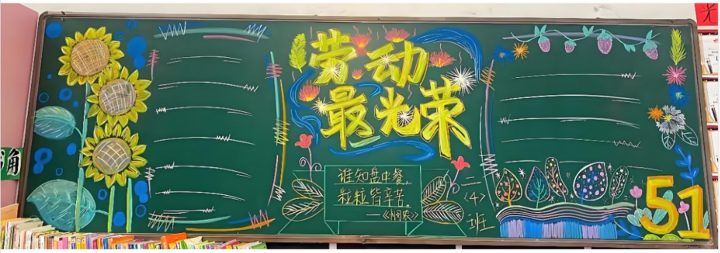 劳动
最光荣
谁知盘中餐，
粒粒皆辛苦。
——《悯农》
二
〈4〉
班
51